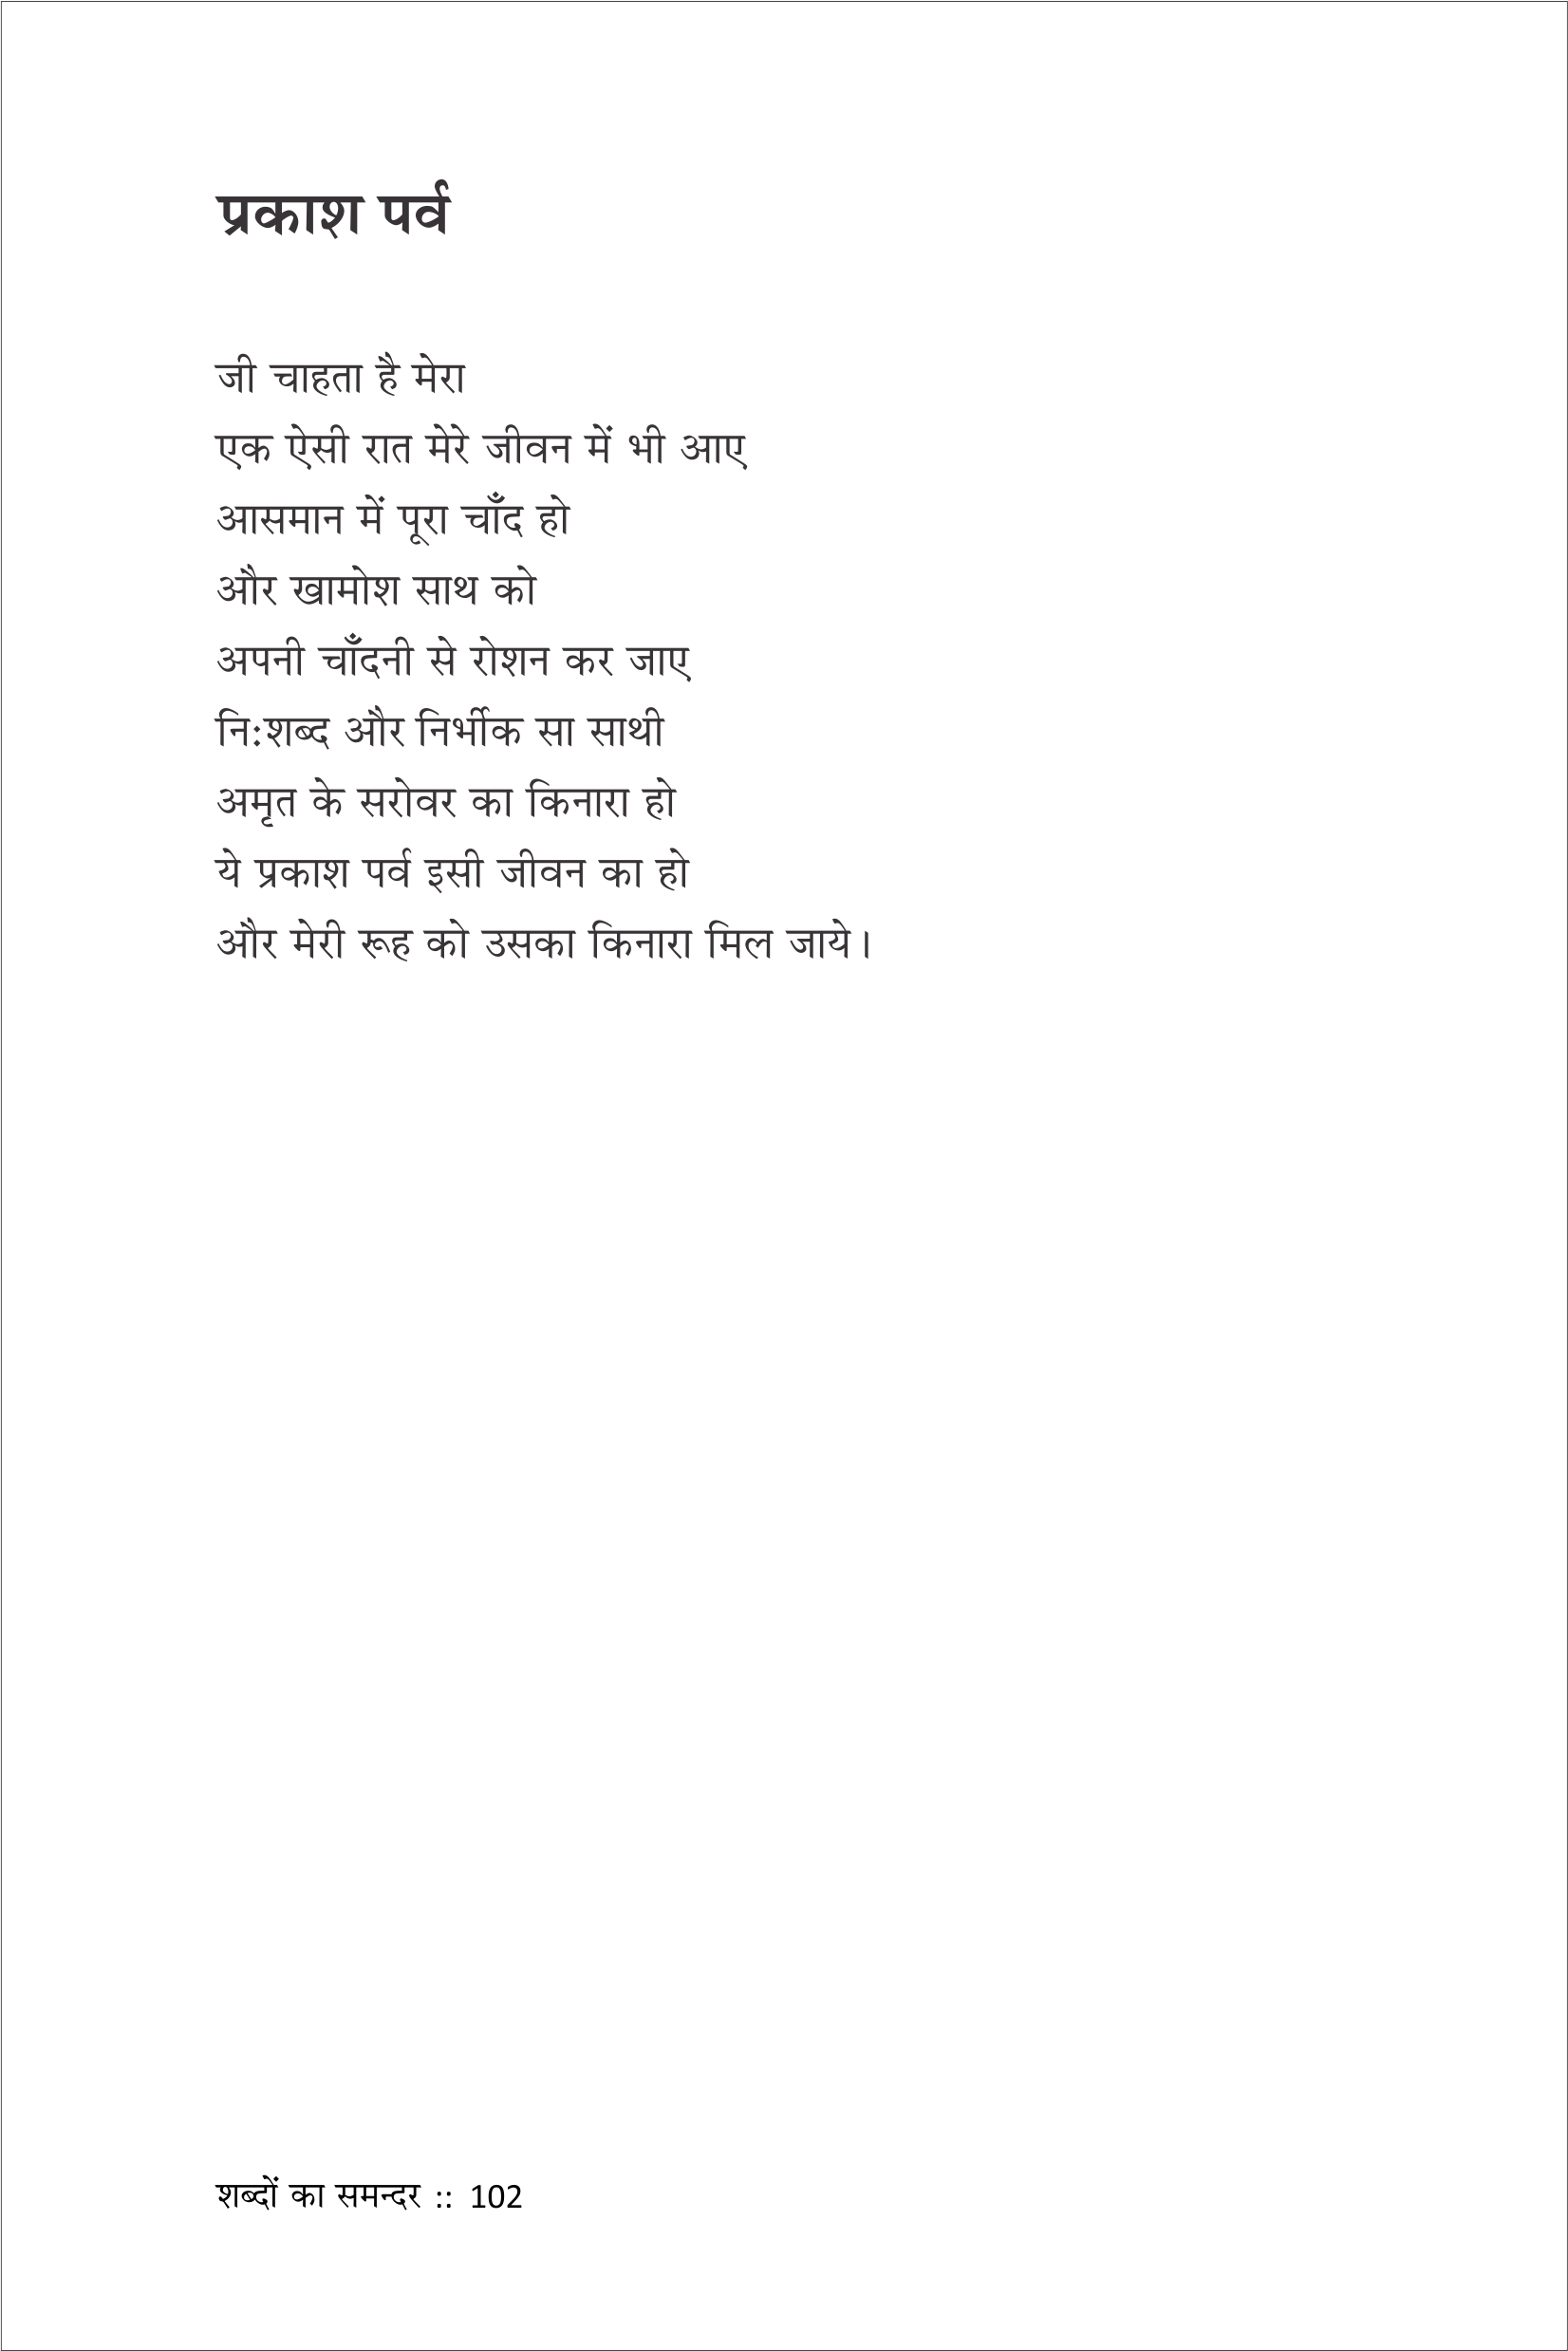 प्रकाश पर्व
जी चाहता है मेरा
एक ऐसी रात मेरे जीवन में भी आए
आसमान में पूरा चाँद हो
और खामोश साथ को
अपनी चाँदनी से रोशन कर जाए
नि:शब्द और निर्भीक सा साथी
अमृत के सरोवर का किनारा हो
ये प्रकाश पर्व इसी जीवन का हो
और मेरी रूह को उसका किनारा मिल जाये।
शब्दों का समन्दर :: 102